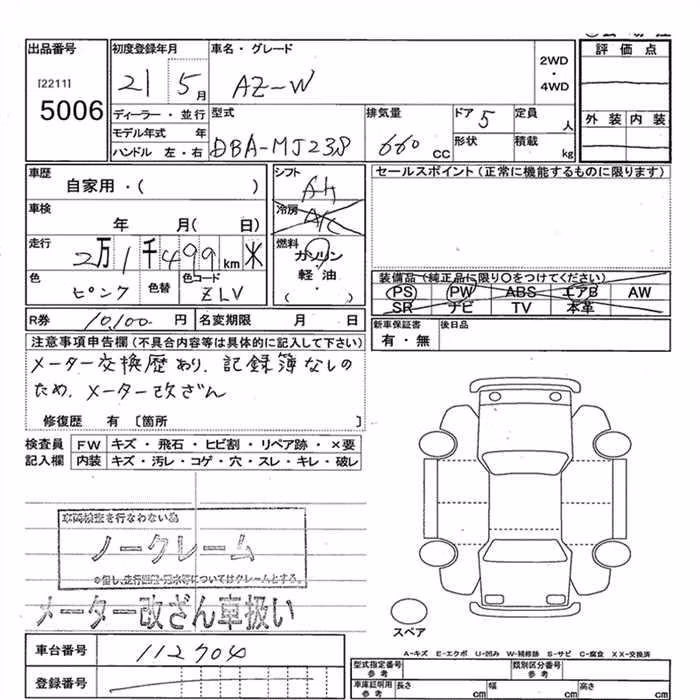 出品番号 初度登録年月 車名・グレード 評価点
[2211] 21 5月 AZ-W 2WD・4WD
5006
ディーラー・並行 型式 排気量 ドア 5 定員 人 外装 内装
モデル年式 年
ハンドル 左・右 DBA-MJ23S 660 cc 形状 積載 kg
車歴 シフト セールスポイント(正常に機能するものに限ります)
自家用・( ) AT
車検 冷房 A/C
年 月( 日)
走行 燃料
2万1千499km ※ ガソリン 装備品(純正品に限り○をつけてください)
色 色替 色コード 軽油 PS PW ABS エアB AW
ピンク ZLV (・) SR ナビ TV 本革
R券 10,100- 円 名変期限 月 日 新車保証書 後日品
有・無
注意事項申告欄(不具合内容等は具体的に記入して下さい)
メーター交換歴あり、記録簿なしの
ため、メーター改ざん
修復歴 有 〔箇所 〕
検査員 FW キズ・飛石・ヒビ割・リペア跡・×要
記入欄 内装 キズ・汚レ・コゲ・穴・スレ・キレ・破レ
車両検査を行なわない為
ノークレーム
※但し、走行距離・冠水等についてはクレームとする。
メーター改ざん車扱い
スペア
車台番号 112704
A-キズ E-エクボ U-凹み W-補修跡 S-サビ C-腐食 XX-交換済
型式指定番号 参考 類別区分番号 参考
登録番号 車庫証明用 参考 長さ cm 幅 cm 高さ cm